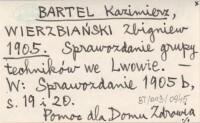 BARTEL Kazimierz,
WIERZBIAŃSKI Zbigniew
1905. Sprawozdanie grupy
techników we Lwowie —
W: Sprawozdanie 1905 b,
s. 19 i 20.
Pomoc dla Domu Zdrowia